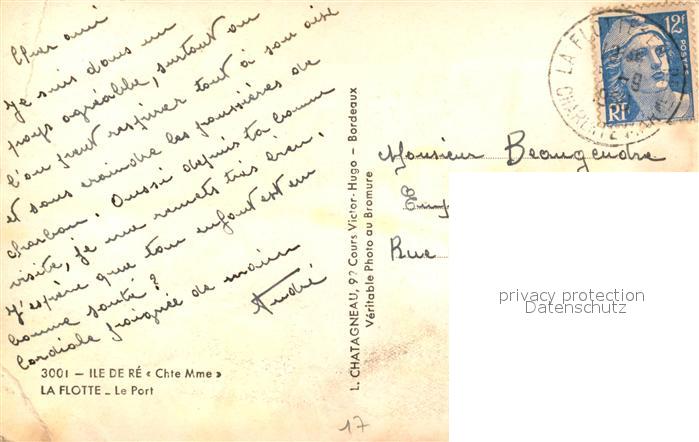 Cher ami
Je suis dans un
pays agréable, surtout où
l'on peut respirer tout à son aise
et sans craindre les poussières de
charbon. Aussi depuis ta bonne
visite, je me remets très bien.
J'espère que ton enfant est en
bonne santé ?
Cordiale poignée de main
André
3001 – ILE DE RÉ « Chte Mme »
LA FLOTTE – Le Port
L. CHATAGNEAU, 92 Cours Victor-Hugo – Bordeaux
Véritable Photo au Bromure
LA FLOTTE
CHARENTE
12F
POSTES
RF
Monsieur Beaugendre
Rue
privacy protection
Datenschutz
17